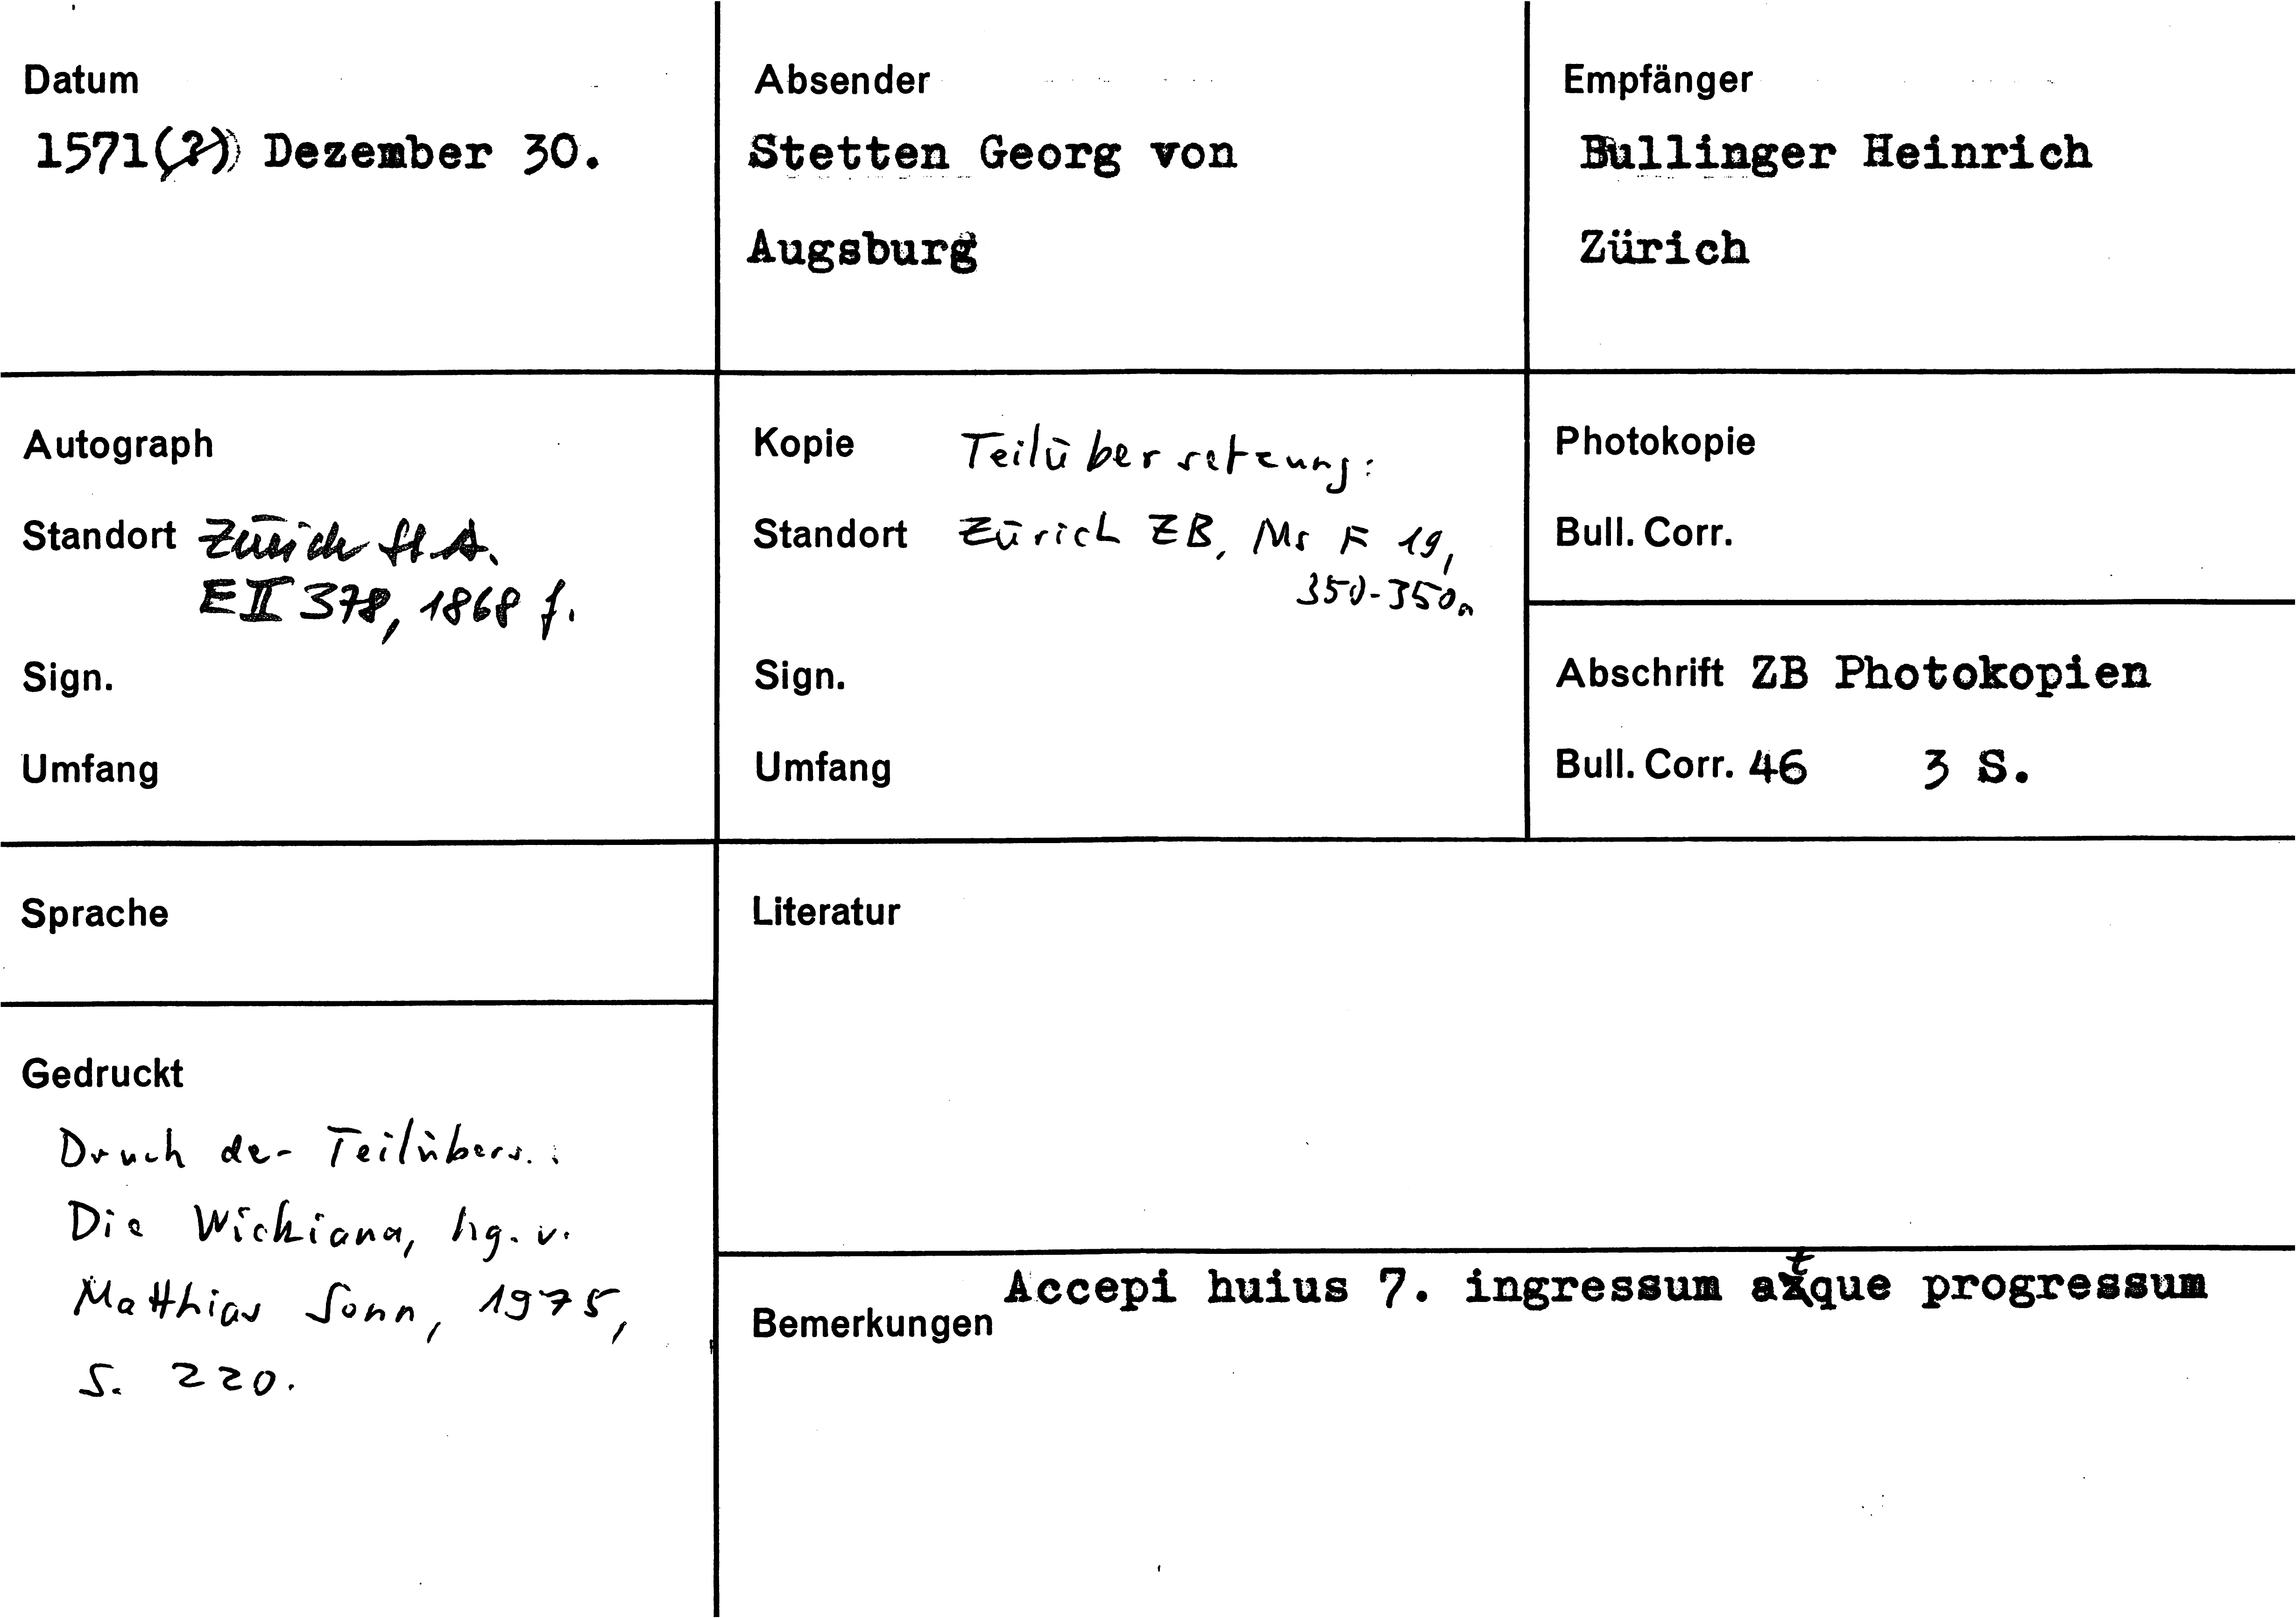 Datum
1571(?) Dezember 30.
Absender
Stetten Georg von
Augsburg
Empfänger
Bullinger Heinrich
Zürich
Autograph
Standort Zürich StA.
E II 378, 1868 f.
Sign.
Umfang
Kopie Teilübersetzung:
Standort Zürich ZB, Ms F 19,
350-350a
Sign.
Umfang
Photokopie
Bull. Corr.
Abschrift ZB Photokopien
Bull. Corr. 46 3 S.
Sprache
Literatur
Gedruckt
Druck der Teilübers.:
Die Wickiana, hg. v.
Matthias Senn, 1975,
S. 220.
Bemerkungen Accepi huius 7. ingressum atque progressum